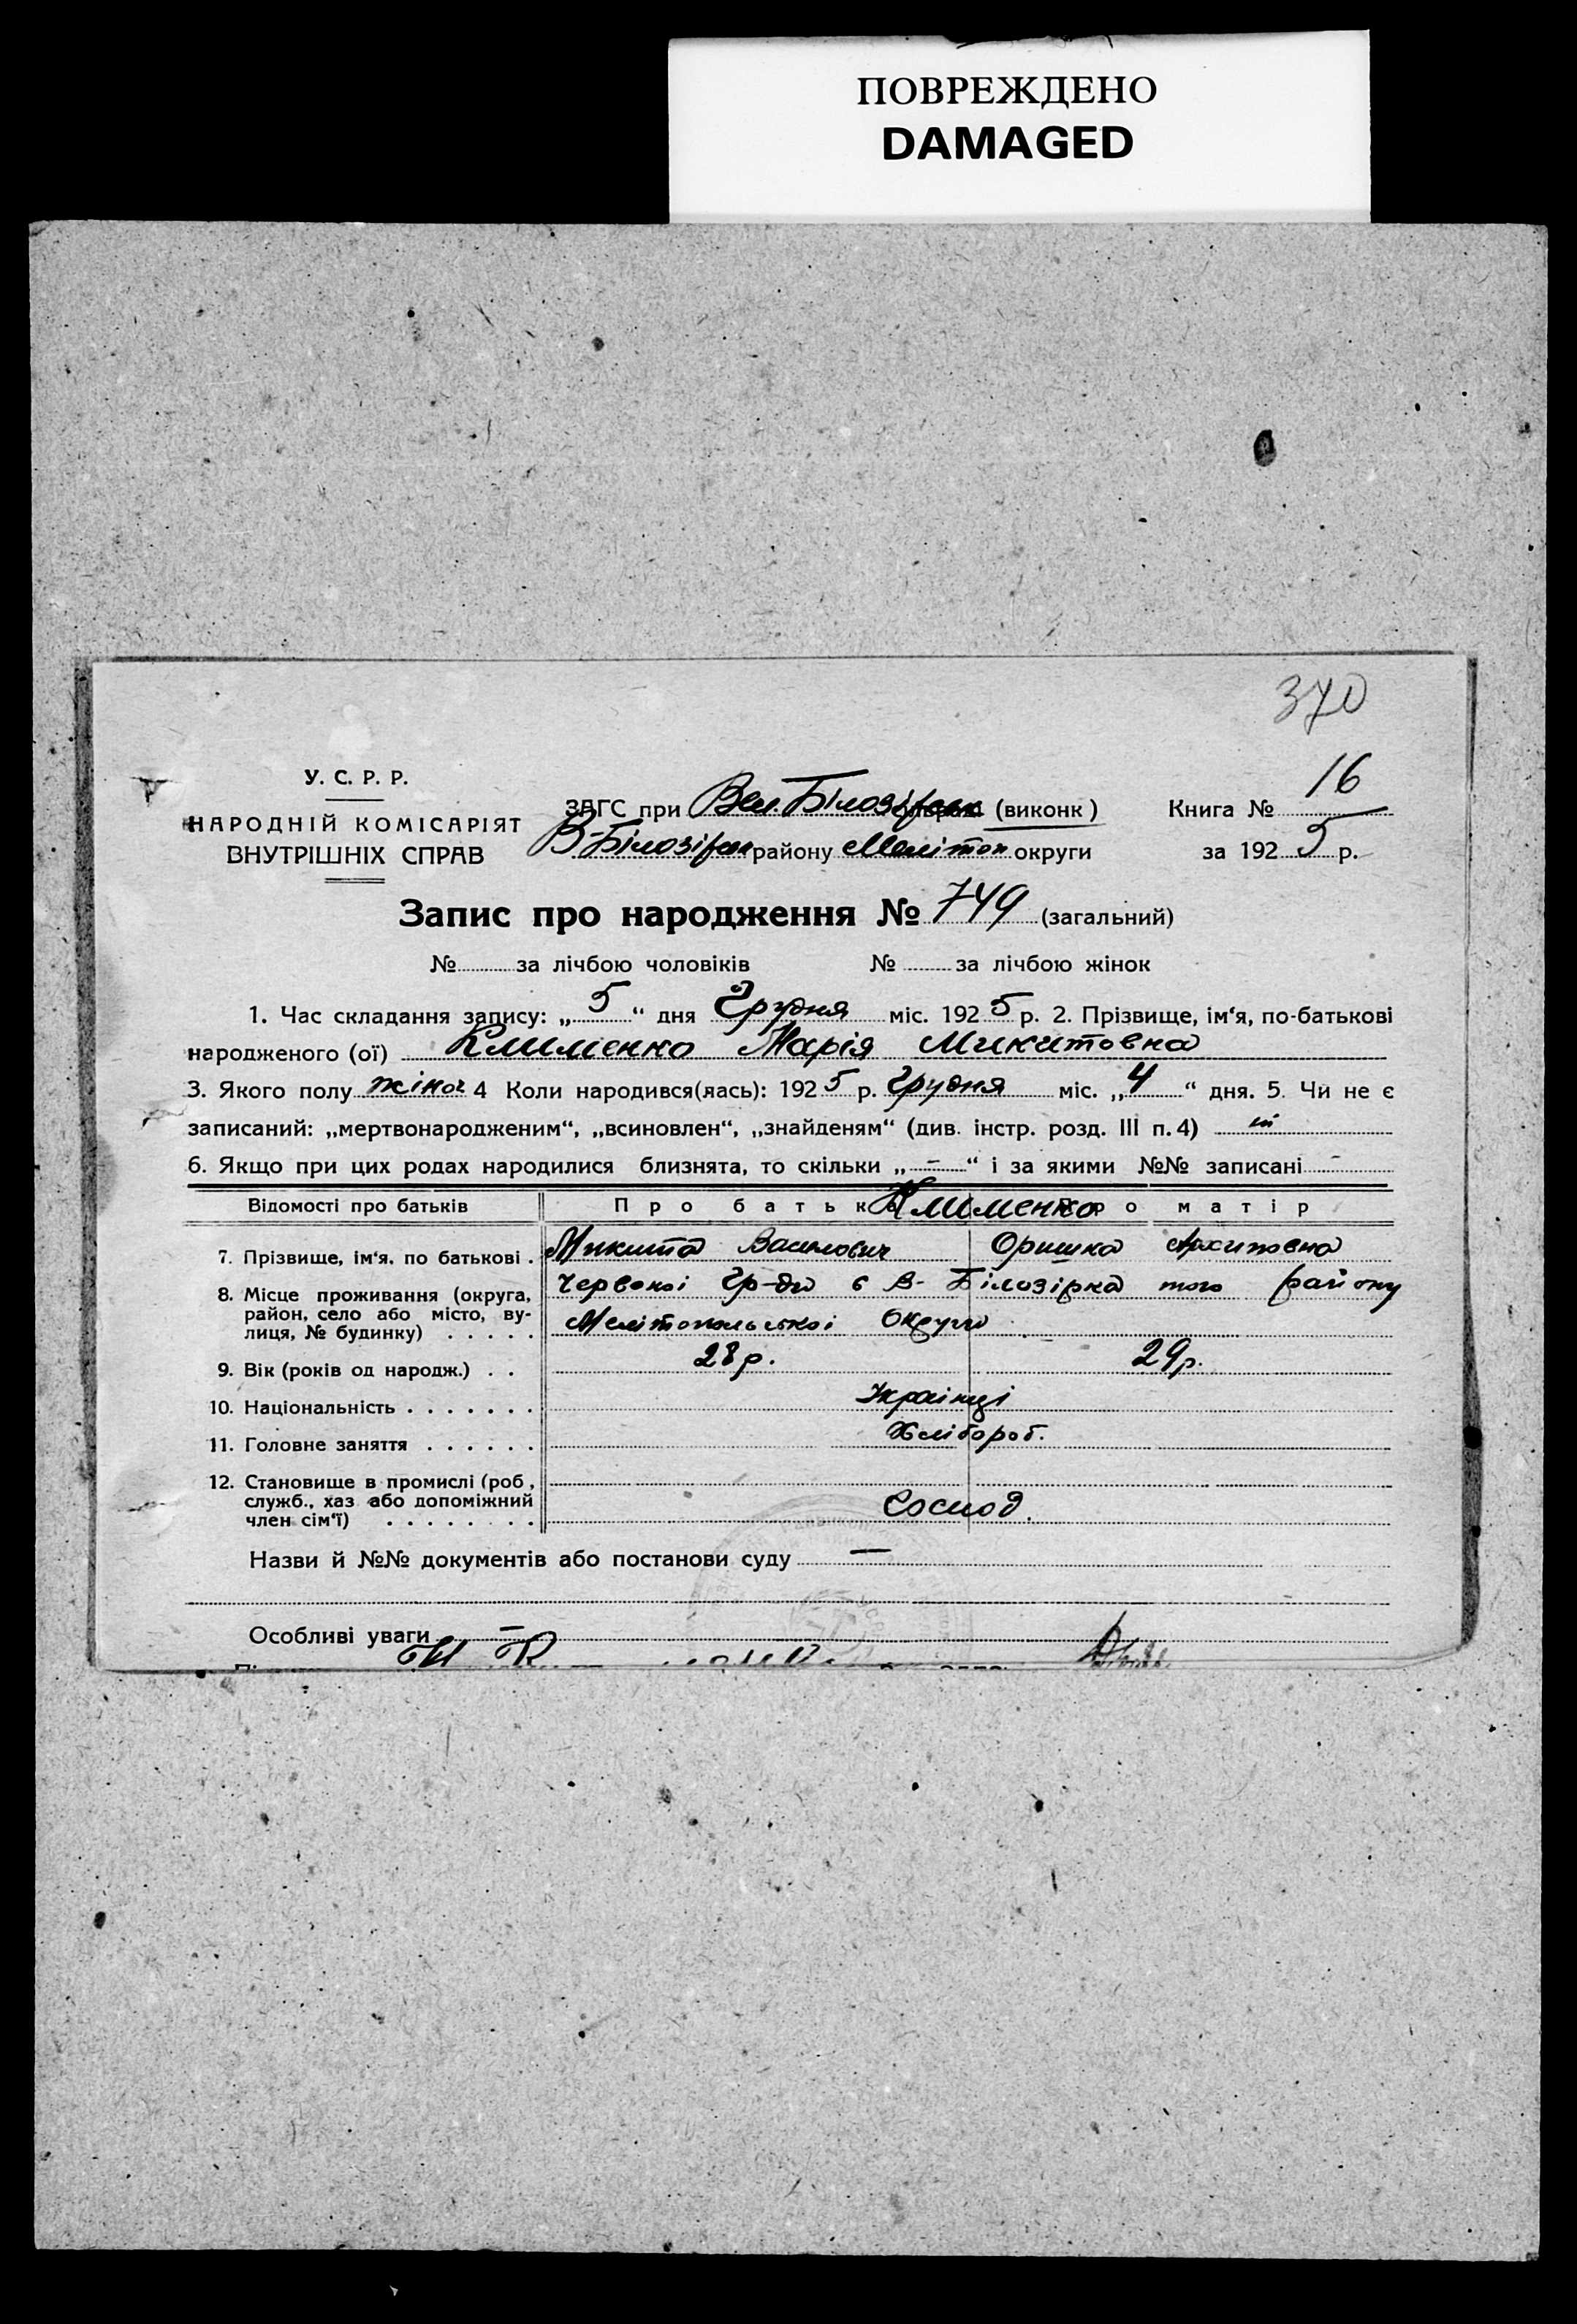 ПОВРЕЖДЕНО
DAMAGED
370
У. С. Р. Р.
НАРОДНІЙ КОМІСАРІЯТ
ВНУТРІШНІХ СПРАВ
ЗАГС при Вел. Білозірськ (виконк)
В-Білозірськ району Мелітоп округи
Книга № 16
за 1925 р.
Запис про народження № 749 (загальний)
№ за лічбою чоловіків № за лічбою жінок
1. Час складання запису: „5“ дня Грудня міс. 1925 р. 2. Прізвище, ім‘я, по-батькові
народженого (ої) Клименко Марія Микитовна
3. Якого полу жіноч 4 Коли народився(лась): 1925 р. Грудня міс. „4“ дня. 5. Чи не є
записаний: „мертвонародженим“, „всиновлен“, „знайденям“ (див. інстр. розд. III п. 4)
6. Якщо при цих родах народилися близнята, то скільки „-“ і за якими №№ записані -
Відомості про батьків Про батька Клименко Про матір
7. Прізвище, ім‘я, по батькові . Микита Василович Оришка Архиповна
8. Місце проживання (округа, Червоної Гр-ди с В- Білозірка того району
район, село або місто, ву- Мелітопольської Округи
лиця, № будинку) . . . . .
9. Вік (років од народж.) . . 28 р. 29 р.
10. Національність . . . . . . . Українці
11. Головне заняття . . . . . . Хлібороб.
12. Становище в промислі (роб,
служб., хаз або допоміжний Господ.
член сім‘ї) . . . . . . . .
Назви й №№ документів або постанови суду —
Особливі уваги —